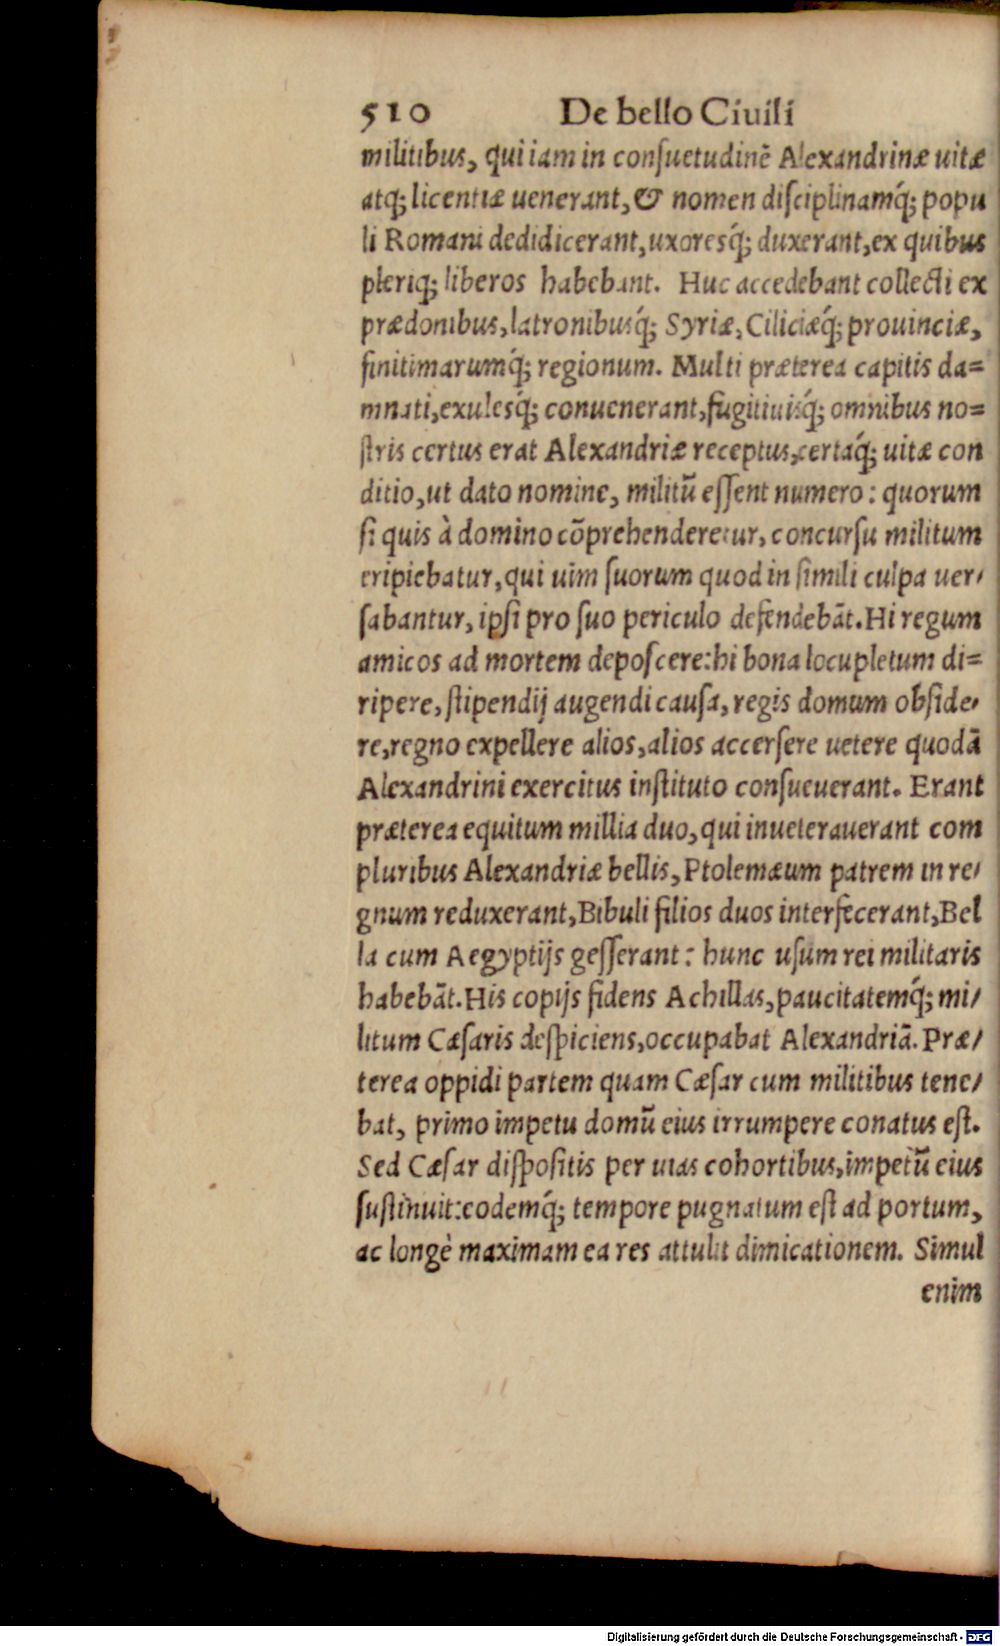 510 De bello Ciuili
militibus, qui iam in conſuetudinē Alexandrinæ uitæ
atq; licentiæ uenerant, & nomen diſciplinamq́; popu
li Romani dedidicerant, uxoresq́; duxerant, ex quibus
pleriq; liberos habebant. Huc accedebant collecti ex
prædonibus, latronibusq́; Syriæ, Ciliciæq́; prouinciæ,
finitimarumq́; regionum. Multi præterea capitis da=
mnati, exulesq́; conuenerant, fugitiuisq́; omnibus no=
ſtris certus erat Alexandriæ receptus, certaq́; uitæ con
ditio, ut dato nomine, militū eſſent numero: quorum
ſi quis à domino cōprehenderetur, concurſu militum
eripiebatur, qui uim ſuorum quod in ſimili culpa uer/
ſabantur, ipſi pro ſuo periculo defendebāt. Hi regum
amicos ad mortem depoſcere: hi bona locupletum di=
ripere, ſtipendij augendi cauſa, regis domum obſide/
re, regno expellere alios, alios accerſere uetere quodā
Alexandrini exercitus inſtituto conſueuerant. Erant
præterea equitum millia duo, qui inueterauerant com
pluribus Alexandriæ bellis, Ptolemæum patrem in re/
gnum reduxerant, Bibuli filios duos interfecerant, Bel
la cum Aegyptijs geſſerant: hunc uſum rei militaris
habebāt. His copijs fidens Achillas, paucitatemq́; mi/
litum Cæſaris deſpiciens, occupabat Alexandriā. Præ/
terea oppidi partem quam Cæſar cum militibus tene/
bat, primo impetu domū eius irrumpere conatus eſt.
Sed Cæſar diſpoſitis per uias cohortibus, impetū eius
ſuſtinuit: eodemq́; tempore pugnatum eſt ad portum,
ac longè maximam ea res attulit dimicationem. Simul
enim
Digitalisierung gefördert durch die Deutsche Forschungsgemeinschaft - DFG